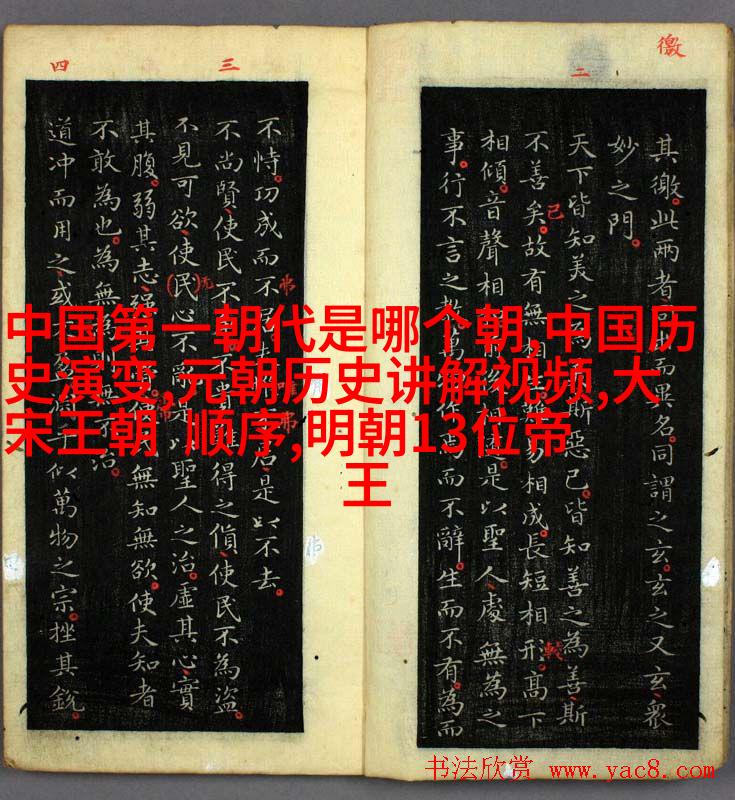 徼
二
其徼。此两者而異名。同謂之玄。玄之又玄。衆
妙之門。
天下皆知美之斯惡已。皆知善之為善斯
不善矣。故有無相難易相成。長短相形。高下
相傾。音聲相是以聖人處無為之
事。行不言之教。萬而不辭。生而不有。為而
三
不恃。功成而不居是以不去。
不尚賢。使民不不得之貨。使民不為盜。
不見可欲。使民心不亂是以聖人之治。虛其心。實
其腹。弱其志。強無知無欲。使夫知者
不敢為也。為無無不治
四
道冲而用之。或似萬物之宗。挫其銳。
中国第一朝代是哪个朝,中国历
史演变,元朝历史讲解视频,大
宋王朝 顺序,明朝13位帝
王
书法欣赏 www.yac8.com